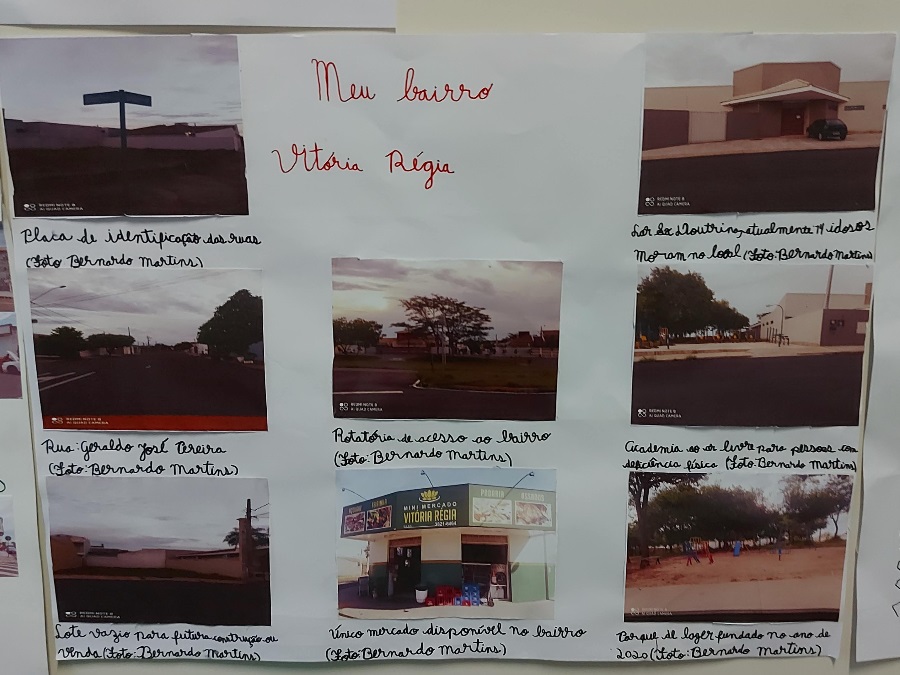 Meu bairro
Vitória Régia
REDMI NOTE 8
AI QUAD CAMERA
Placa de identificação das ruas
(Foto Bernardo Martins)
REDMI NOTE 8
AI QUAD CAMERA
atualmente 14 idosos
Moram no local (Foto: Bernardo Martins)
REDMI NOTE 8
AI QUAD CAMERA
Rua: Geraldo José Pereira
(Foto: Bernardo Martins)
REDMI NOTE 8
AI QUAD CAMERA
Rotatória de acesso ao bairro
(Foto: Bernardo Martins)
REDMI NOTE 8
AI QUAD CAMERA
Academia ao ar livre para pessoas com
deficiência física (Foto: Bernardo Martins)
REDMI NOTE 8
AI QUAD CAMERA
Lote vazio para futura construção ou
Venda (Foto: Bernardo Martins)
PADARIA
MINI MERCADO
VITÓRIA RÉGIA
3621-6464
Único mercado disponível no bairro
(Foto: Bernardo Martins)
Parque de lazer fundado no ano de
2020 (Foto: Bernardo Martins)